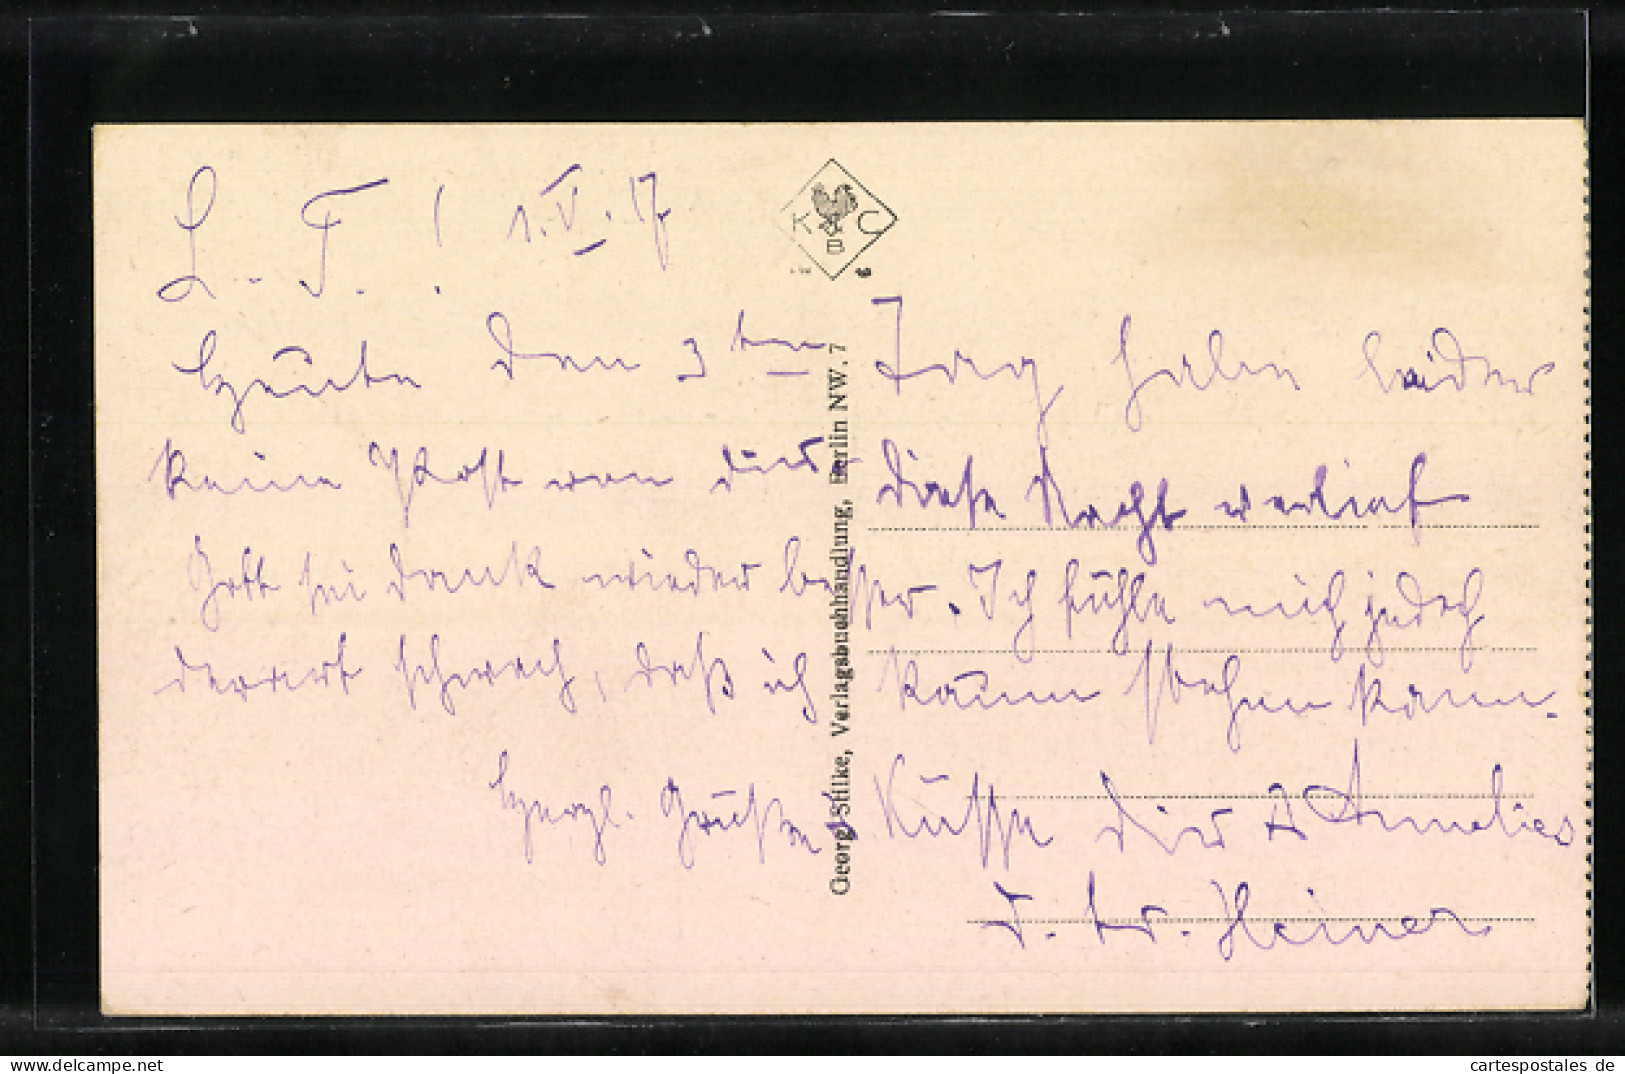 L. F.! 1.V.17
Heute den 3ten Tag habe leider
keine Post von dir. diese Nacht verlief
Gott sei dank wieder besser. Ich fühle mich jedoch
derart schwach, daß ich kaum stehen kann.
Herzl. Grüße Küsse dir Annelies
d. tr. Heiner
K B C
Georg Stilke, Verlagsbuchhandlung, Berlin NW. 7
cartespostales de